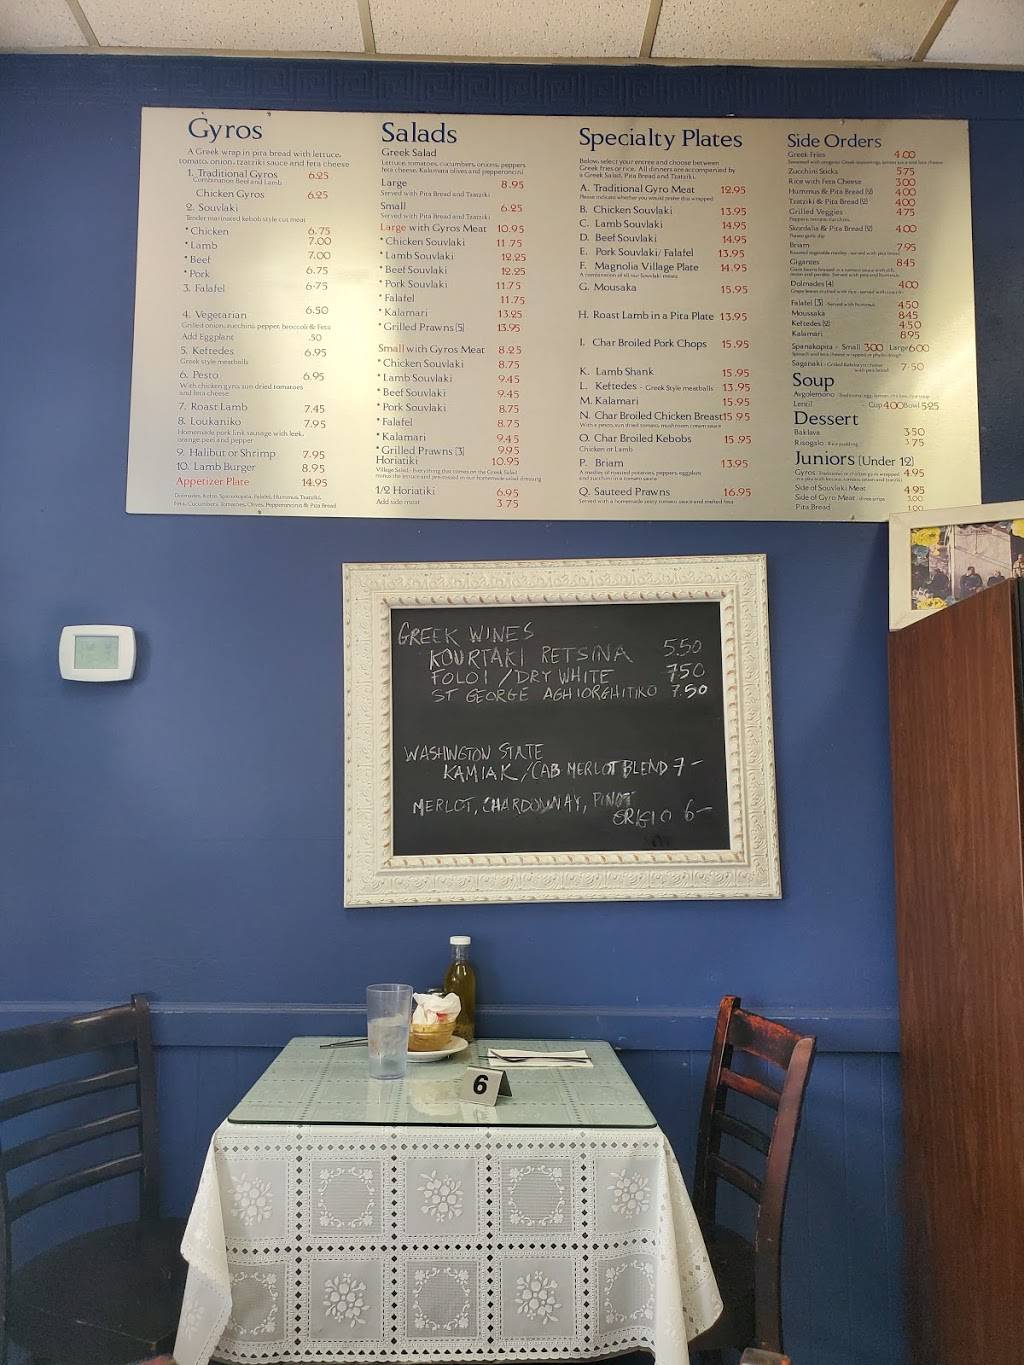 Gyros
A Greek wrap in pita bread with lettuce,
tomato, onion, tzatziki sauce and feta cheese
1. Traditional Gyros 6.25
Combination Beef and Lamb
Chicken Gyros 6.25
2. Souvlaki
Tender marinated kebob style cut meat
* Chicken 6.75
* Lamb 7.00
* Beef 7.00
* Pork 6.75
3. Falafel 6.75
4. Vegetarian 6.50
Grilled onion, zucchini, pepper, broccoli & Feta
Add Eggplant .50
5. Keftedes 6.95
Greek style meatballs
6. Pesto 6.95
With chicken gyro, sun dried tomatoes
and feta cheese
7. Roast Lamb 7.45
8. Loukaniko 7.95
Homemade pork link sausage with leek,
orange peel and pepper
9. Halibut or Shrimp 7.95
10. Lamb Burger 8.95
Appetizer Plate 14.95
Dolmades, Keftes, Spanakopita, Falafel, Hummus, Tzatziki,
Feta, Cucumbers, Tomatoes, Olives, Pepperoncini & Pita Bread
Salads
Greek Salad
Lettuce, tomatoes, cucumbers, onions, peppers
feta cheese, Kalamata olives and pepperoncini
Large 8.95
Served with Pita Bread and Tzatziki
Small 6.25
Served with Pita Bread and Tzatziki
Large with Gyros Meat 10.95
* Chicken Souvlaki 11.75
* Lamb Souvlaki 12.25
* Beef Souvlaki 12.25
* Pork Souvlaki 11.75
* Falafel 11.75
* Kalamari 13.25
* Grilled Prawns [5] 13.95
Small with Gyros Meat 8.25
* Chicken Souvlaki 8.75
* Lamb Souvlaki 9.45
* Beef Souvlaki 9.45
* Pork Souvlaki 8.75
* Falafel 8.75
* Kalamari 9.45
* Grilled Prawns [3] 9.95
Horiatiki 10.95
Village Salad - Everything that comes on the Greek Salad
minus the lettuce and presented in our homemade salad dressing
1/2 Horiatiki 6.95
Add side meat 3.75
Specialty Plates
Below, select your entree and choose between
Greek fries or rice. All dinners are accompanied by
a Greek Salad, Pita Bread and Tzatziki.
A. Traditional Gyro Meat 12.95
Please indicate whether you would prefer this wrapped
B. Chicken Souvlaki 13.95
C. Lamb Souvlaki 14.95
D. Beef Souvlaki 14.95
E. Pork Souvlaki/ Falafel 13.95
F. Magnolia Village Plate 14.95
A combination of all our Souvlaki meats
G. Mousaka 15.95
H. Roast Lamb in a Pita Plate 13.95
I. Char Broiled Pork Chops 15.95
K. Lamb Shank 15.95
L. Keftedes - Greek Style meatballs 13.95
M. Kalamari 15.95
N. Char Broiled Chicken Breast 15.95
With a pesto, sun dried tomato, mushroom cream sauce
O. Char Broiled Kebobs 15.95
Chicken or Lamb
P. Briam 13.95
A medley of roasted potatoes, peppers, eggplant
and zucchini in a tomato sauce
Q. Sauteed Prawns 16.95
Served with a homemade zesty tomato sauce and melted feta
Side Orders
Greek Fries 4.00
Zucchini Sticks 5.75
Rice with Feta Cheese 3.00
Hummus & Pita Bread [2] 4.00
Tzatziki & Pita Bread [2] 4.00
Grilled Veggies 4.75
Skordalia & Pita Bread [2] 4.00
Briam 7.95
Gigantes 8.45
Dolmades [4] 4.00
Falafel [3] - Served with hummus 4.50
Moussaka 8.45
Keftedes [2] 4.50
Kalamari 8.95
Spanakopita - Small 3.00 Large 6.00
Saganaki 7.50
Soup
Avgolemono
Lentil - Cup 4.00 Bowl 5.25
Dessert
Baklava 3.50
Risogalo 3.75
Juniors [Under 12]
Gyros 4.95
Side of Souvlaki Meat 4.95
Side of Gyro Meat 3.00
Pita Bread 1.00
GREEK WINES
KOURTAKI RETSINA 5.50
FOLOI / DRY WHITE 7.50
ST GEORGE AGHIORGHITIKO 7.50
WASHINGTON STATE
KAMIAK / CAB MERLOT BLEND 7-
MERLOT, CHARDONNAY, PINOT
GRIGIO 6-
6